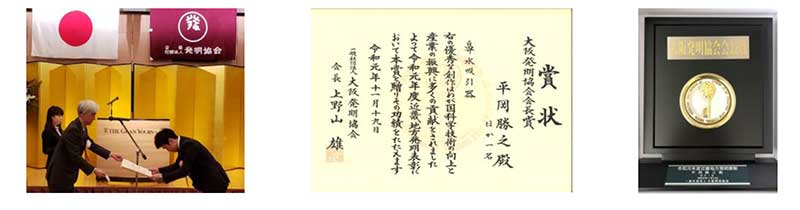 発明協会
THE GRAN YOURS
賞状
大阪発明協会会長賞
平岡勝之殿
ほか一名
導水吸引器
右の優秀な創作はわが国科学技術の向上と
産業の振興に多くの貢献をされました
よって令和元年度近畿地方発明表彰に
おいて本賞を贈りその功績をたたえます
令和元年十一月十九日
一般社団法人大阪発明協会
会長 上野山 雄
大阪発明協会会長賞
令和元年度近畿地方発明表彰